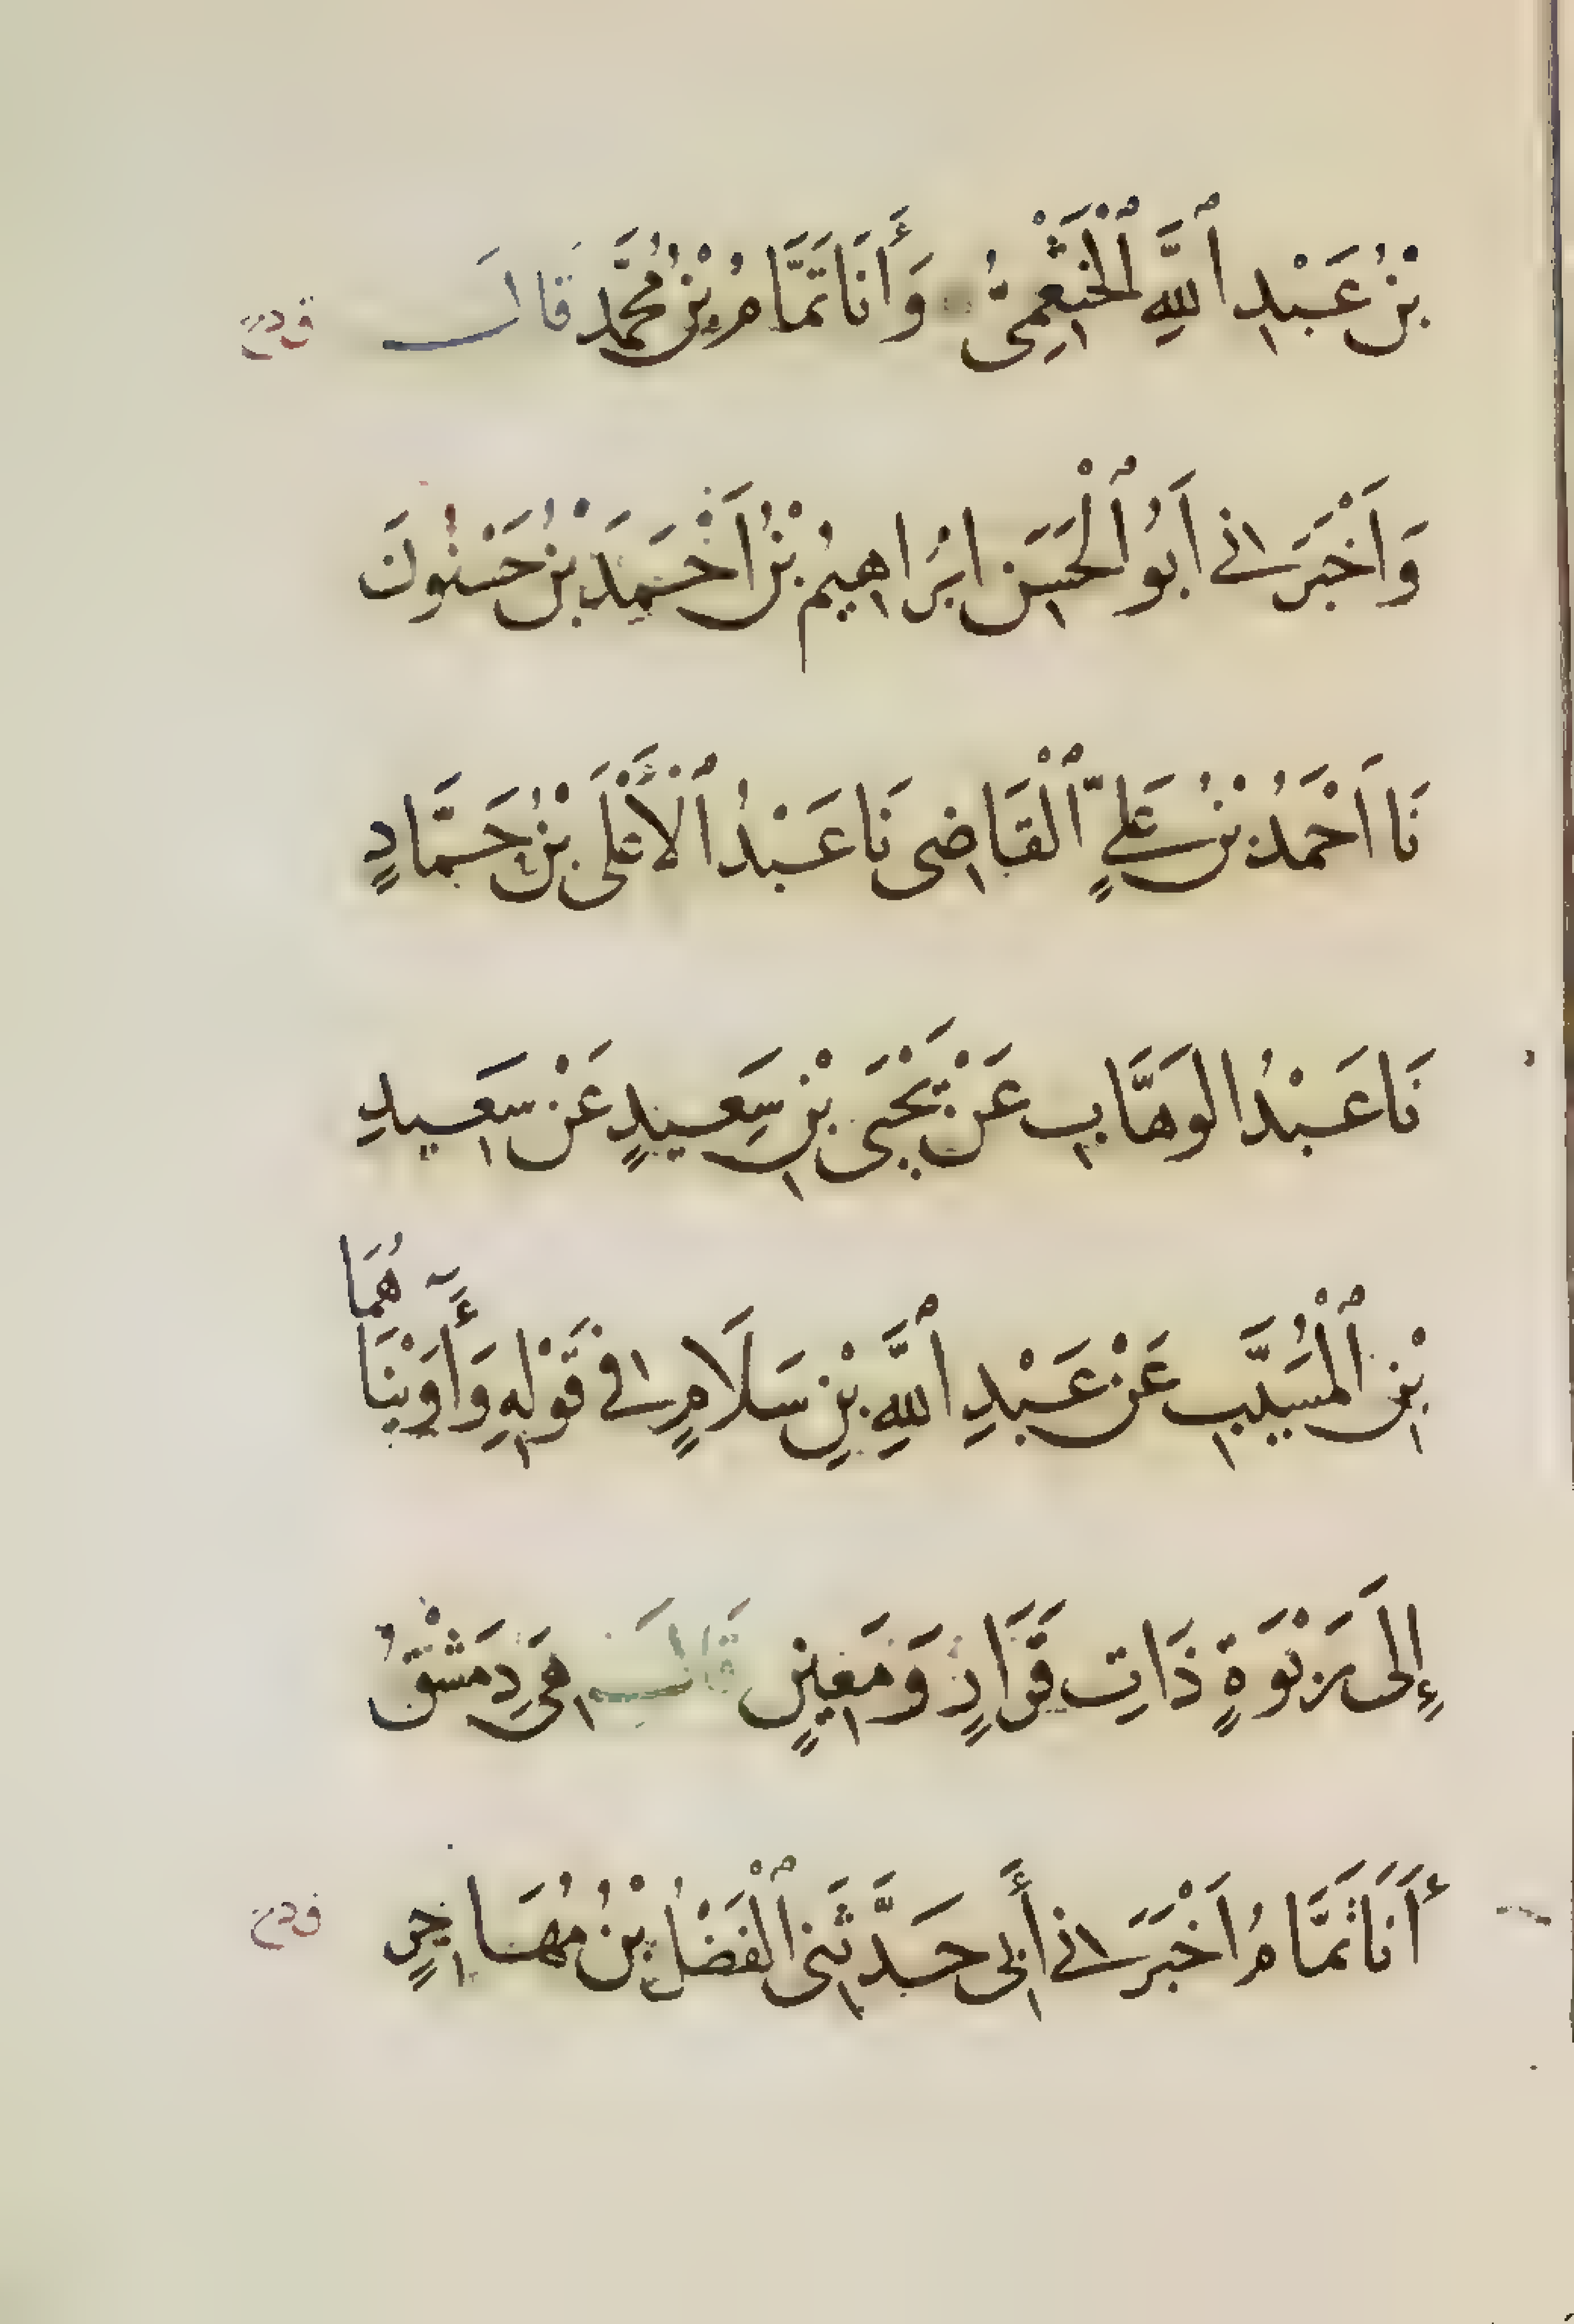 بْنُ عَبْدِ ٱللَّهِ ٱلْخَثْعَمِىُّ وَأَنَا تَمَّامُ بْنُ مُحَمَّد قَالَ
وَاَخْبَرَنِي اَبُو ٱلْحَسَنِ ابْرَاهِيمُ بْنُ اَحْمَدَ بْنُ حَسْنُونَ
نَا اَحْمَدُ بْنُ عَلِيٍّ ٱلْقَاضِى نَا عَبْدُ ٱلْأَعْلَى بْنُ حَمَّادٍ
نَا عَبْدُ الوَهَّابِ عَنْ يَحْيَى بْنِ سَعِيدٍ عَنْ سَعِيدِ
بْنِ ٱلْمُسَيَّبِ عَنْ عَبْدِ ٱللَّهِ بْنِ سَلَامٍ فِي قَوْلِهِ وَأٓوَيْنَاهُمَا
إِلَى رَبْوَةٍ ذَاتِ قَرَارٍ وَمَعِينٍ قَالَ هِيَ دِمَشْقُ
أَنَا تَمَّامُ اَخْبَرَنِي أَبِى حَدَّثَنِى ٱلْفَضْلُ بْنُ مُهَاجِرٍ